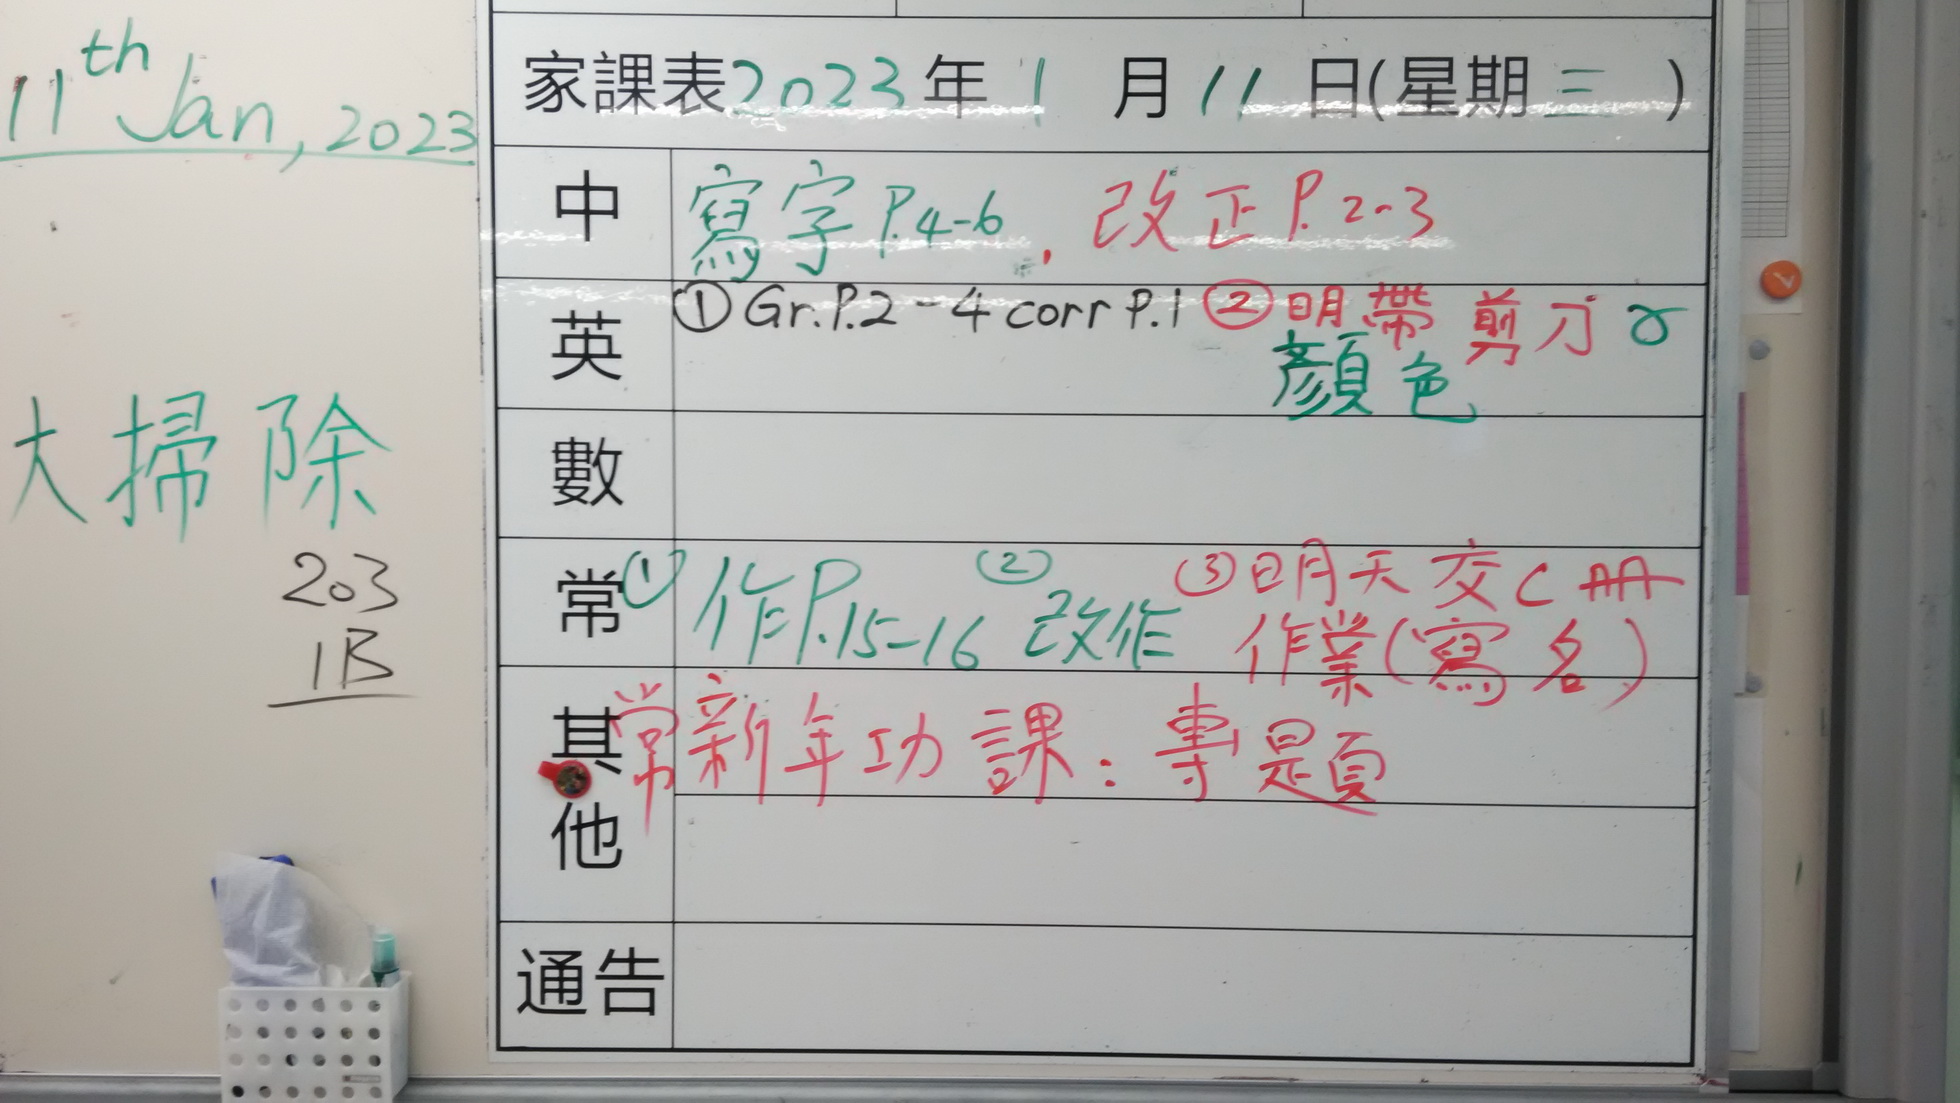 11th Jan, 2023
大掃除
203
1B
家課表2023年1月11日(星期三)
中 寫字P.4-6, 改正P.2-3
英 ①Gr.P.2-4 corr P.1 ②明帶剪刀
顏色
數
常 ①作P.15-16 ②改作 ③明天交C冊
作業(寫名)
其他 常新年功課：專題
通告